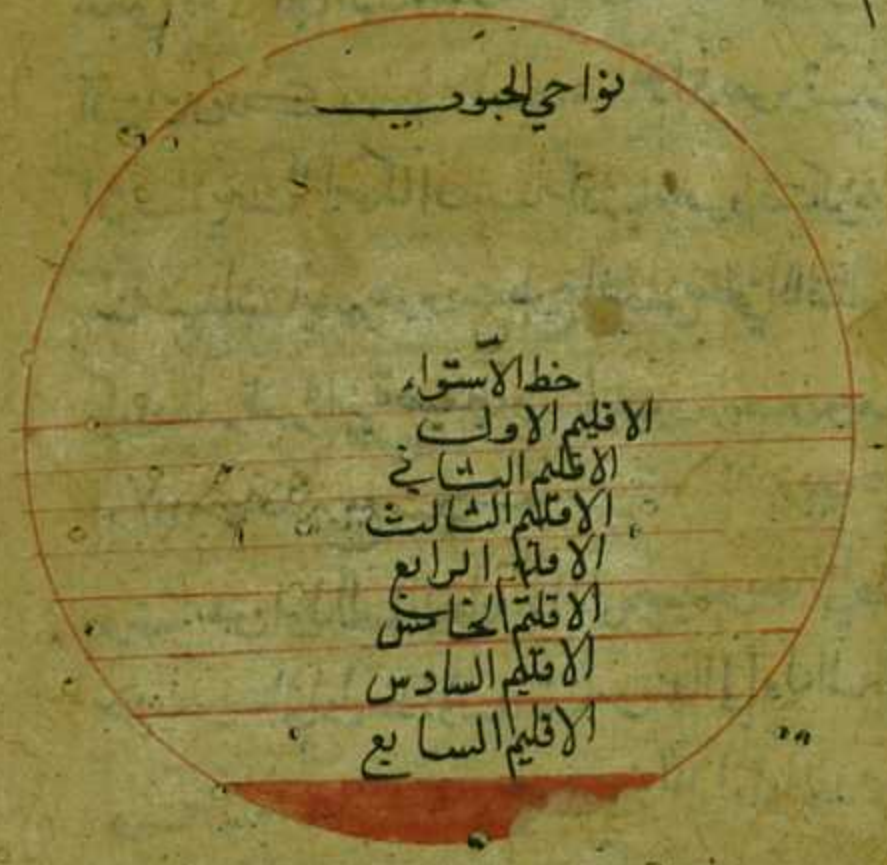 نواحي الجنوب
خط الاستواء
الاقليم الاول
الاقليم الثاني
الاقليم الثالث
الاقليم الرابع
الاقليم الخامس
الاقليم السادس
الاقليم السابع